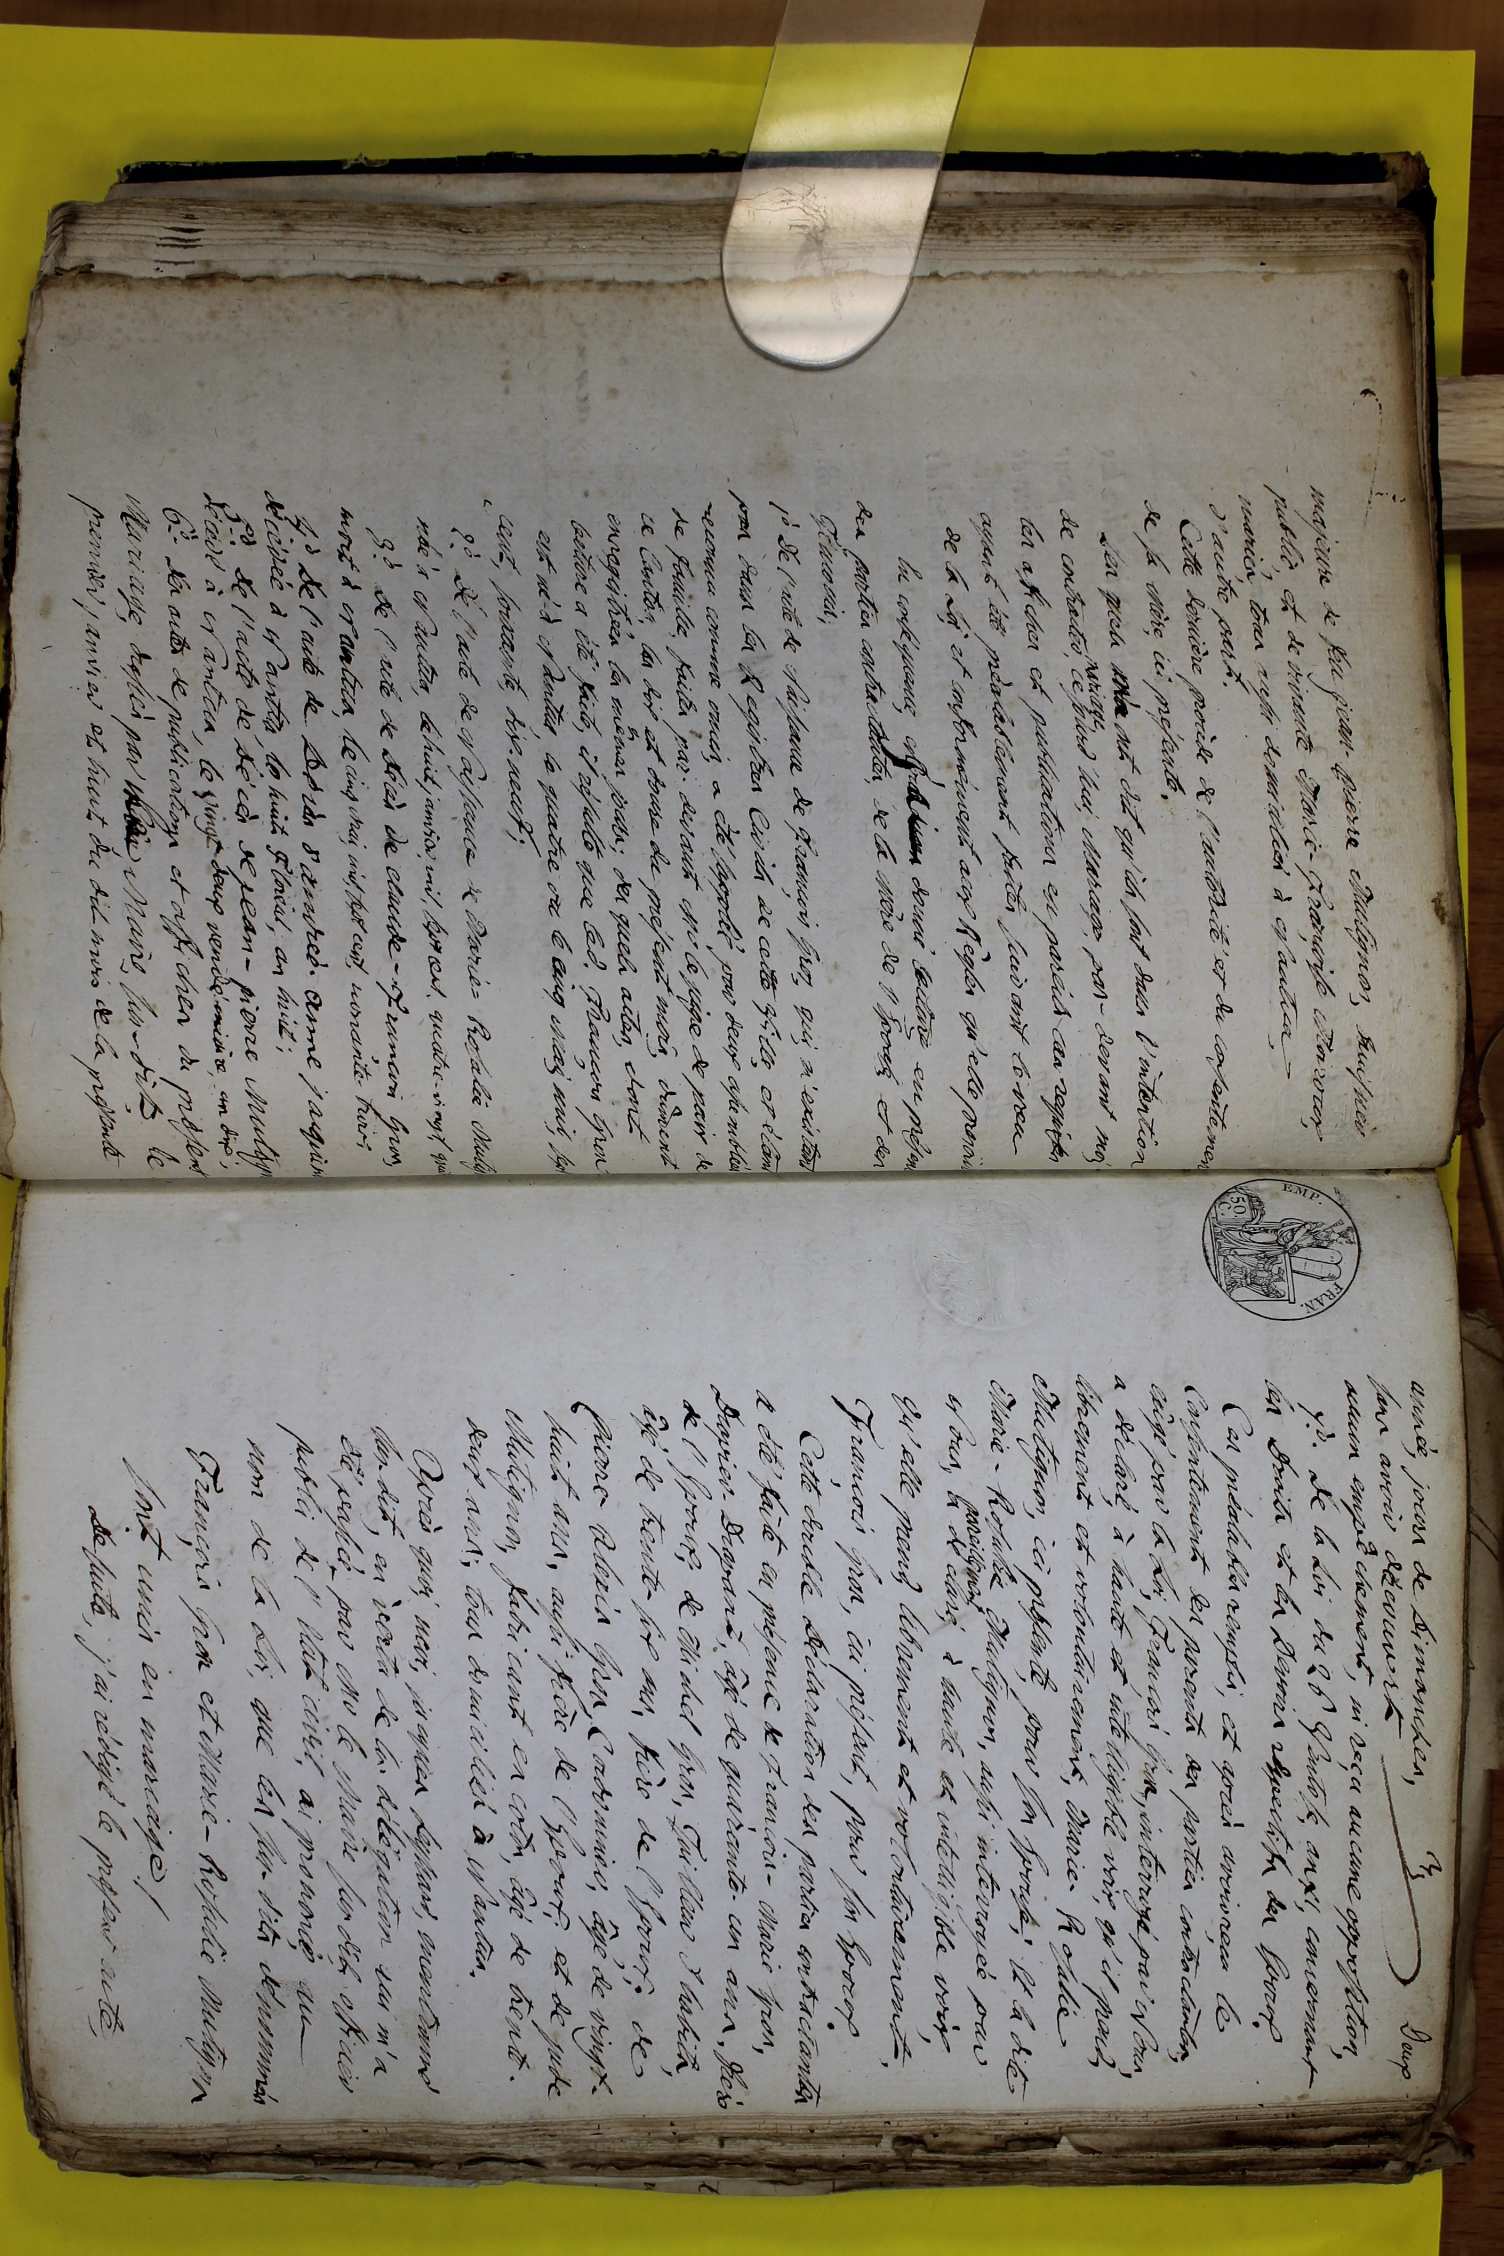 majeure de feu jean-pierre Mulignon, huissier
public, et de vivante Marie-Françoise
mariés, tous trois domiciliés à Nantua,
d'autre part.
Cette dernière procède de l'autorité et du consentement
de sa Mère, ici présente.
Les quels m'ont dit qu'ils sont dans l'intention
de contracter, cejourd'hui, Mariage, par-devant moi,
les affiches et publications en pareils cas requises
ayant été préalablement faites suivant le vœu
de la Loi, et conformément aux Règles qu'elle prescrit
En conséquence, donné lecture en présence
des parties contractantes, de la Mère de l'Epouse, et des
Témoins,
1o de l'acte de Naissance de François Gros, qui n'existant
pas dans les Registres Civils de cette Ville, et étant
reconnu comme omis, a été suppléé par deux assemblées
de famille, faites par devant Mr le juge de paix de
ce Canton, les dix et douze du présent mois, dûment
enregistrées les mêmes jours; des quels actes, dont
lecture a été faite, il résulte que led. François Gros
est né à Nantua, le quatre ou le cinq Mai, mil, sept
cent, soixante, dix, neuf;
2o De l'acte de Naissance de Marie-Rosalie Mulignon
née à Nantua, le huit janvier, mil, sept cent, quatre-vingt,
3o De l'acte de décès de claude-François Gros,
mort à Nantua, le cinq mai, mil, sept cent, nonante trois;
4o De l'acte de Décès d'andrée-anne jaquin
décédée à Nantua, le huit floréal, an huit;
5o De l'acte de Décès de jean-pierre Mulignon
décédé à Nantua, le vingt-deux vendémiaire, an dix;
6o Des actes de publication et affiches du présent
Mariage, dressés par Mr le Maire, sus-dit, le
premier janvier et huit du dit mois de la présente
EMP. FRAN.
50 C.
3
Deux
année, jours de Dimanches,
sans avoir découvert
aucun empêchement, ni reçu aucune opposition;
7o. De la Loi du 26 Ventose, an XI, concernant
les Droits et les Devoirs respectifs des Epoux.
Ces préalables remplis, et après avoir reçu le
Consentement des parents des parties contractantes,
exigé par la Loi, François Gros, interrogé par Nous,
a déclaré, à haute et intelligible voix, qu'il prend,
librement et volontairement, Marie-Rosalie
Mulignon, ici présente, pour son Epouse; Et la dite
Marie-Rosalie Mulignon, aussi interrogée par
Nous, a pareillement déclaré, à haute et intelligible voix,
Qu'elle prend, librement et volontairement,
François Gros, ici présent, pour son Epoux.
Cette double Déclaration des parties contractantes
a été faite en présence de François-Marie Gros,
âgé de quarante-un ans, frère
de l'Epoux, de Michel Gros,
âgé de trente-six ans, frère de l'Epoux; de
pierre alexis Gros, Cadornier, âgé de vingt-
huit ans, aussi frère de l'Epoux; et de jude
Mulignon, fabricant en coton, âgé de trente-
deux ans; tous domiciliés à Nantua.
Après quoi, moi, susdit, en vertu de la délégation qui m'a
été passée par Mr le Maire sus-dit, officier
public de l'état civil, ai prononcé, au
nom de la Loi, que les sus-dits dénommés
François Gros et Marie-Rosalie Mulignon
sont unis en mariage!
De suite, j'ai rédigé le présent acte,